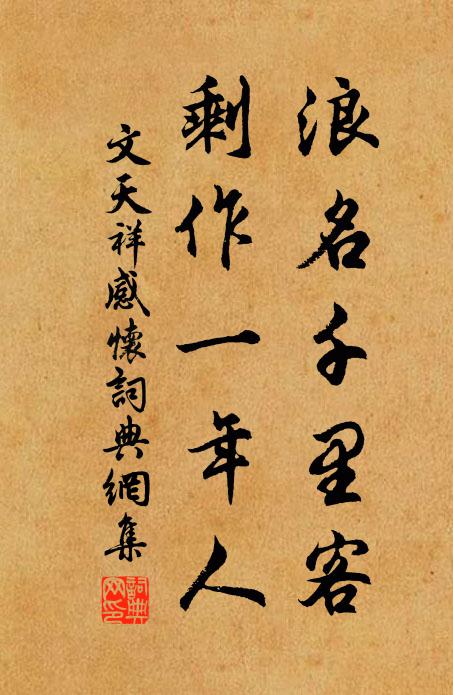 浪名千里客
剩作一年人
文天祥感懷詞典網集
詞典網印